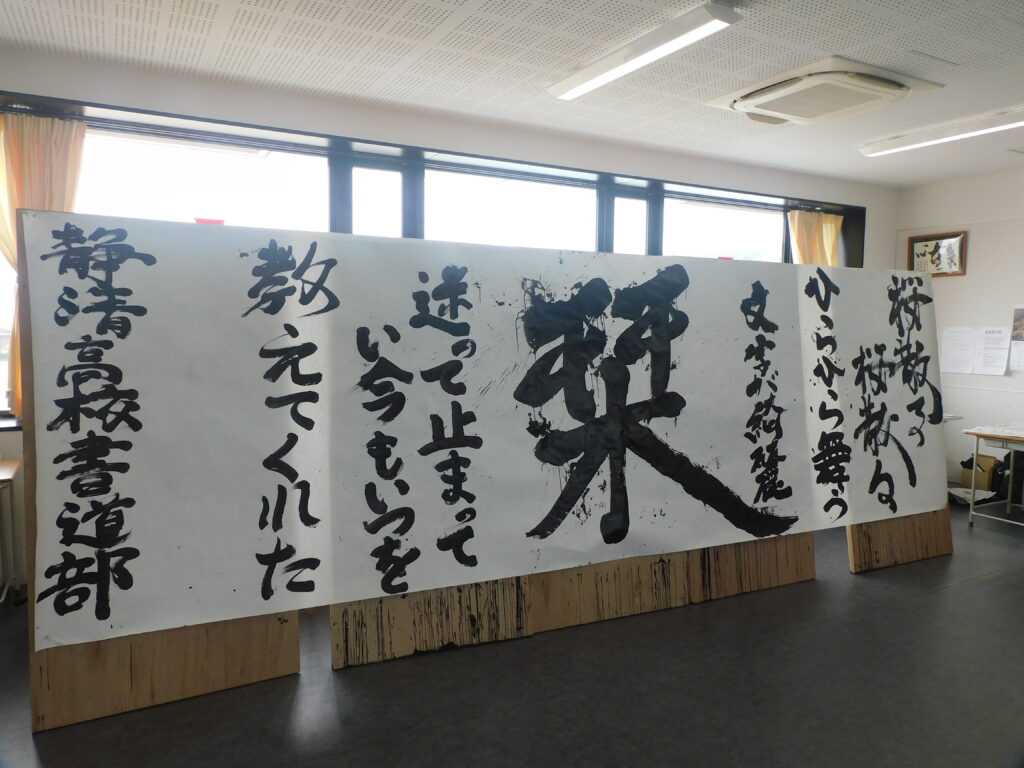 桜散る
桜散る
ひらひら舞う
文字が綺麗
栞
迷って止まって
い今もいつを
教えてくれた
静清高校書道部